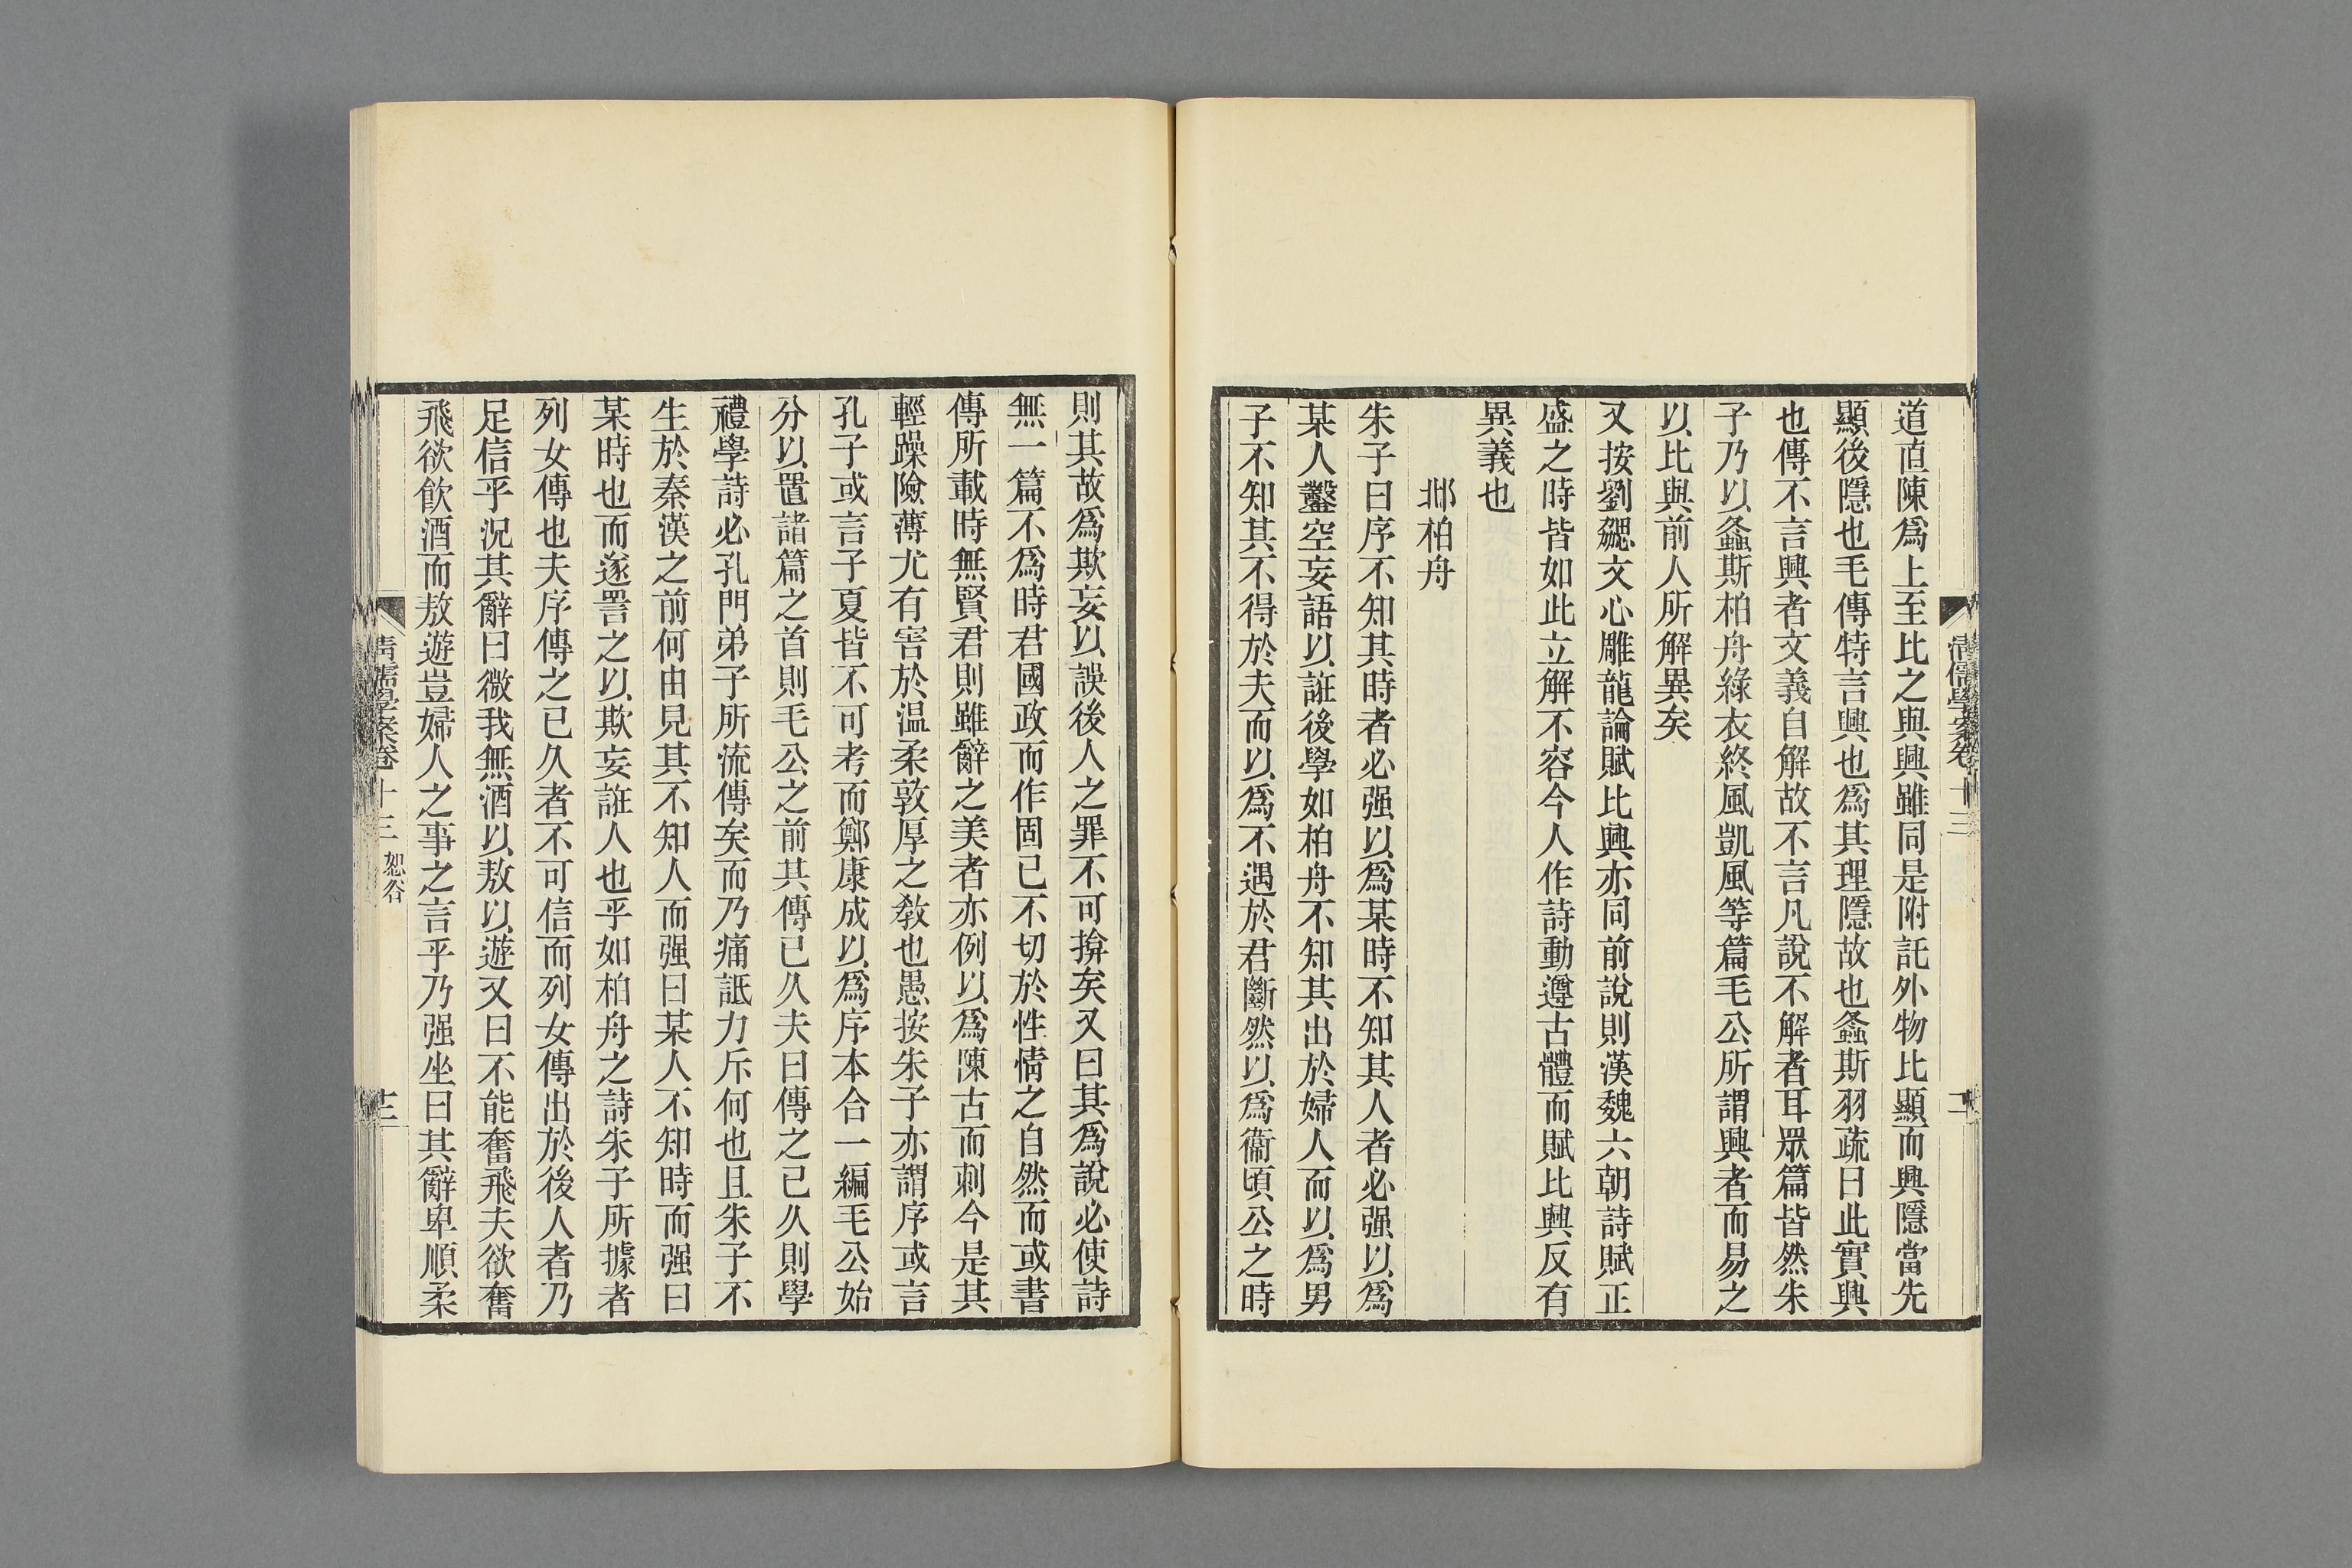 道直陳爲上至比之與興雖同是附託外物比顯而興隱當先
顯後隱也毛傳特言興也爲其理隱故也螽斯羽疏曰此實興
也傳不言興者文義自解故不言凡說不解者耳眾篇皆然朱
子乃以螽斯柏舟綠衣終風凱風等篇毛公所謂興者而易之
以比與前人所解異矣
又按劉勰文心雕龍論賦比興亦同前說則漢魏六朝詩賦正
盛之時皆如此立解不容今人作詩動遵古體而賦比興反有
異義也
邶柏舟
朱子曰序不知其時者必强以爲某時不知其人者必强以爲
某人鑿空妄語以誑後學如柏舟不知其出於婦人而以爲男
子不知其不得於夫而以爲不遇於君斷然以爲衞頃公之時
則其故爲欺妄以誤後人之罪不可揜矣又曰其爲說必使詩
無一篇不爲時君國政而作固已不切於性情之自然而或書
傳所載時無賢君則雖辭之美者亦例以爲陳古而刺今是其
輕躁險薄尤有害於温柔敦厚之敎也愚按朱子亦謂序或言
孔子或言子夏皆不可考而鄭康成以爲序本合一編毛公始
分以置諸篇之首則毛公之前其傳已久夫曰傳之已久則學
禮學詩必孔門弟子所流傳矣而乃痛詆力斥何也且朱子不
生於秦漢之前何由見其不知人而强曰某人不知時而强曰
某時也而遂詈之以欺妄誑人也乎如柏舟之詩朱子所據者
列女傳也夫序傳之已久者不可信而列女傳出於後人者乃
足信乎況其辭曰微我無酒以敖以遊又曰不能奮飛夫欲奮
飛欲飮酒而敖遊豈婦人之事之言乎乃强坐曰其辭卑順柔
清儒學案卷十三 恕谷